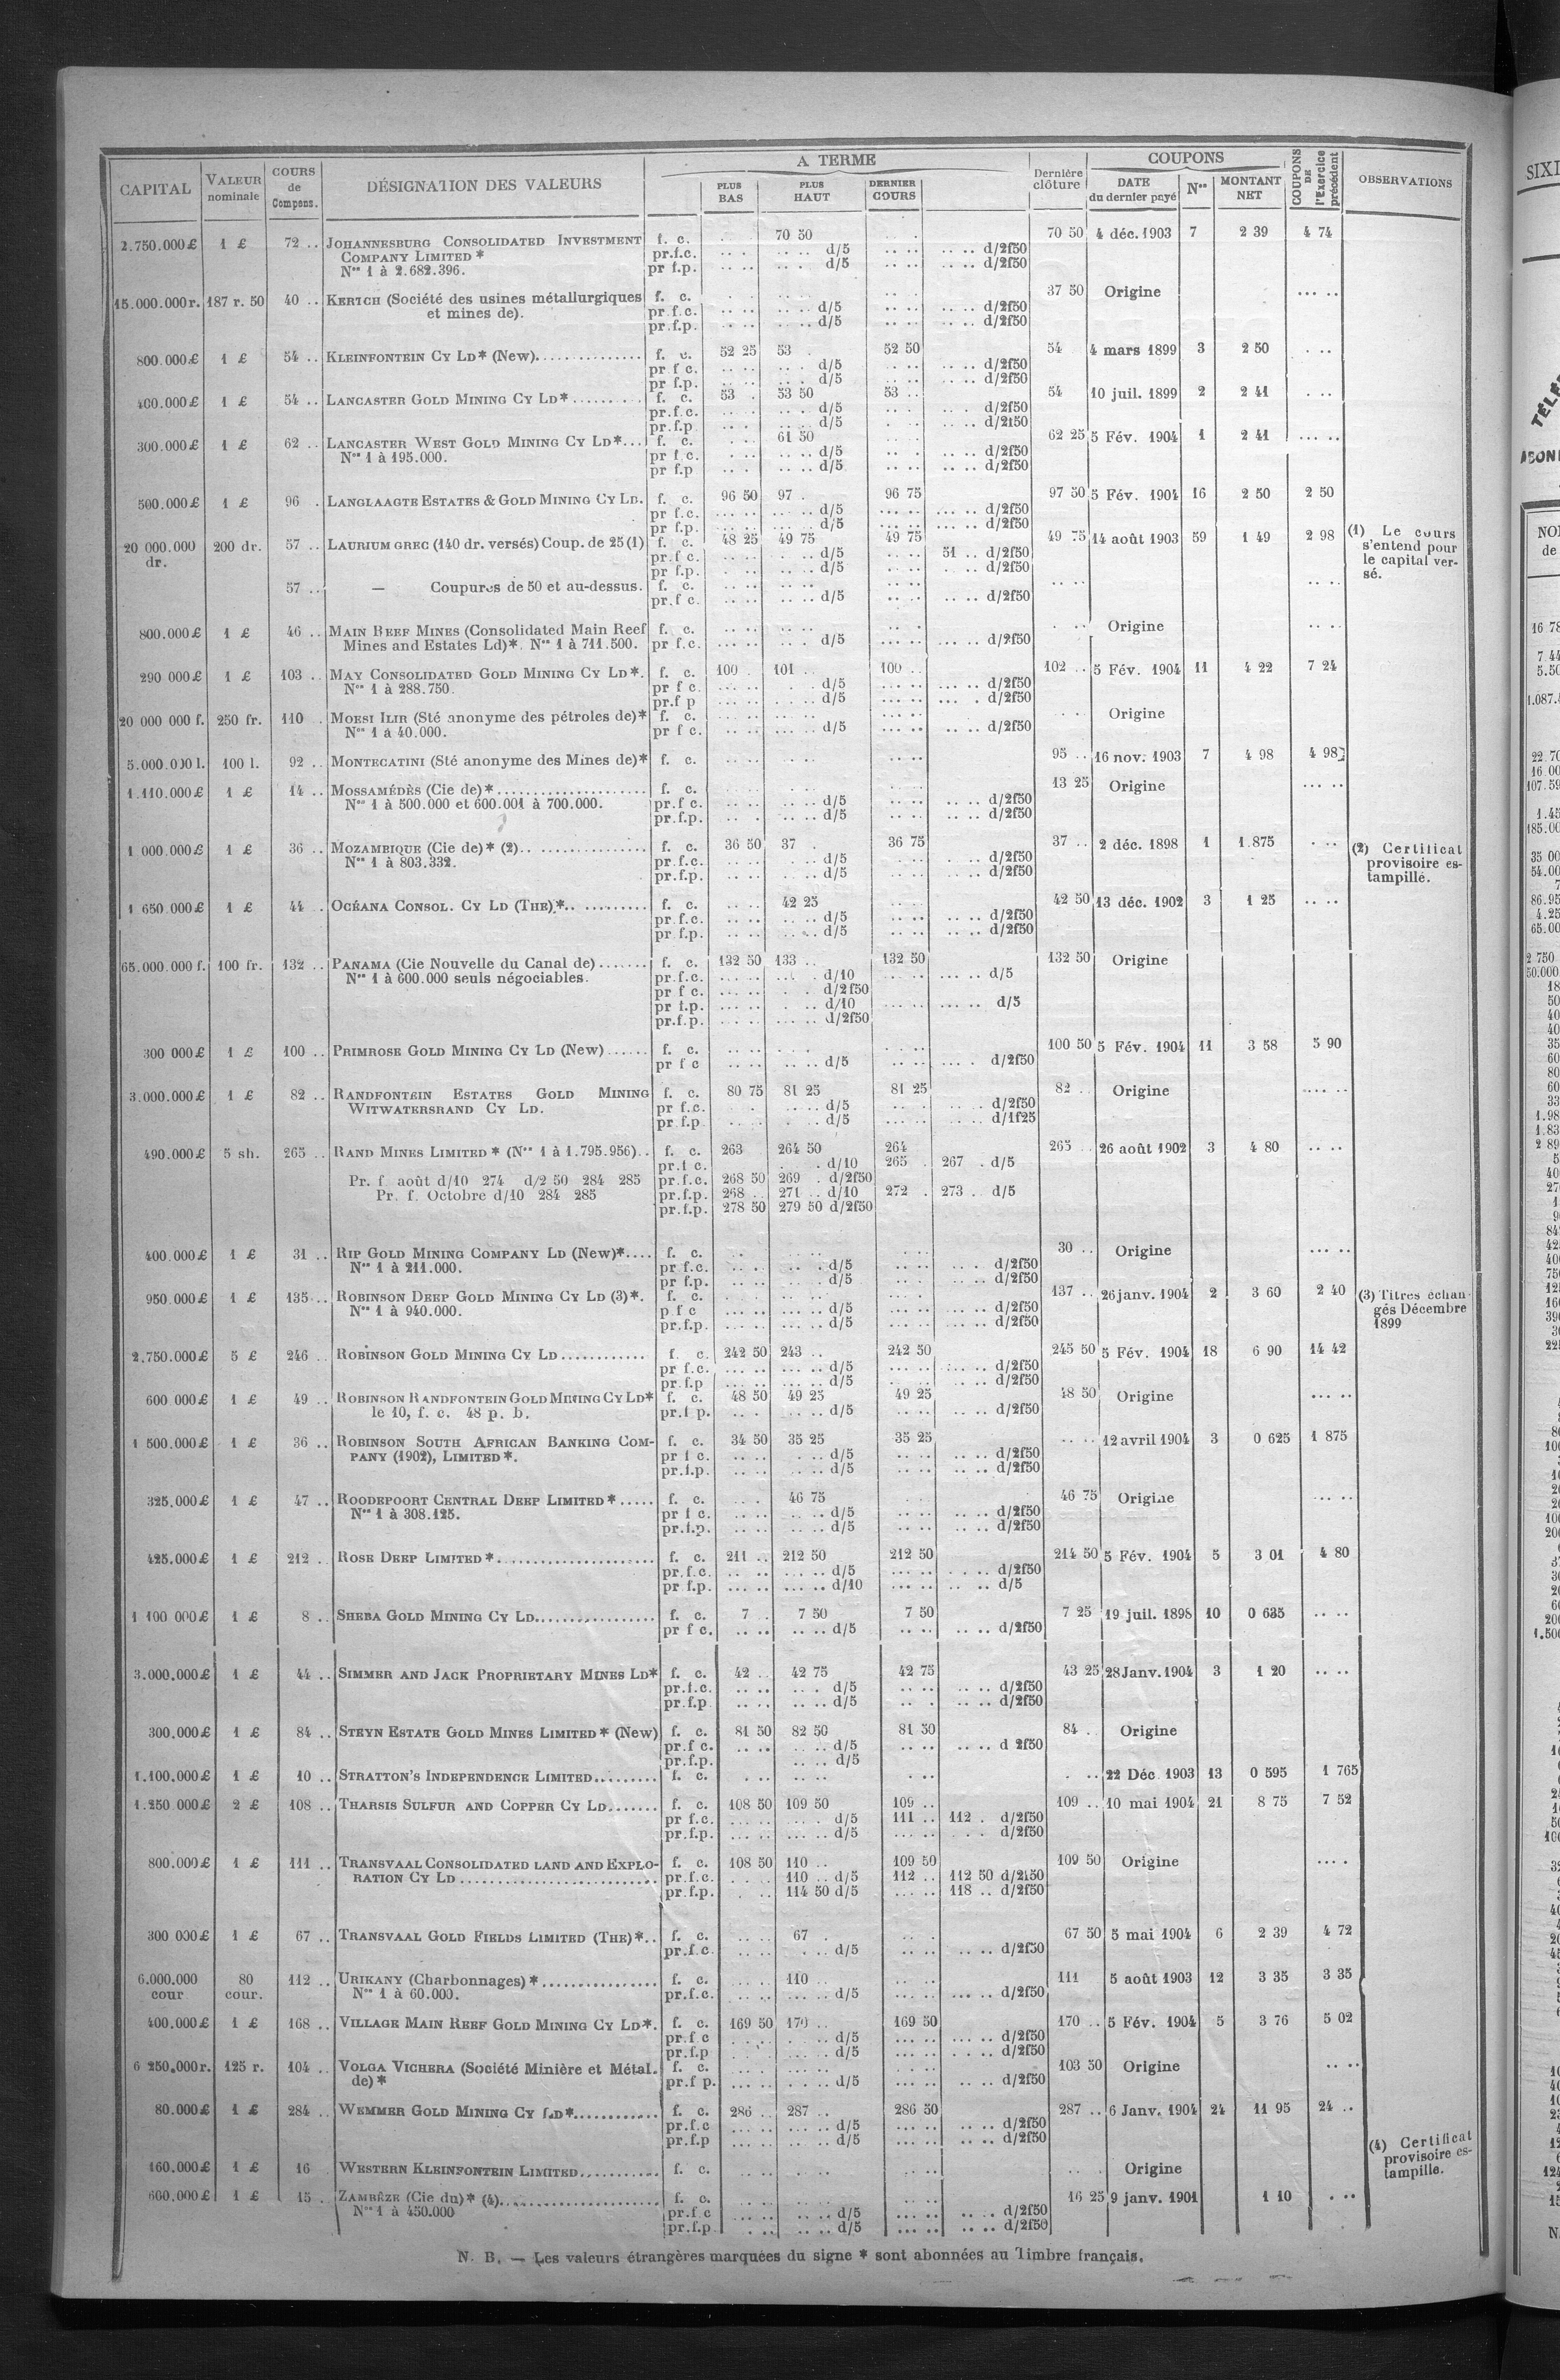 CAPITAL VALEUR nominale COURS de Compens. DÉSIGNATION DES VALEURS A TERME PLUS BAS PLUS HAUT DERNIER COURS Dernière clôture COUPONS DATE du dernier payé Nos MONTANT NET COUPONS DE l'Exercice précédent OBSERVATIONS
2.750.000£ 1 £ 72 .. JOHANNESBURG CONSOLIDATED INVESTMENT f. c. 70 50 70 50 4 déc. 1903 7 2 39 4 74
COMPANY LIMITED * pr.f.c. d/5 d/2f50
Nos 1 à 2.682.396. pr f.p. d/5 d/2f50
15.000.000r. 187 r. 50 40 .. KERTCH (Société des usines métallurgiques f. c. 37 50 Origine
et mines de). pr.f.c. d/5 d/2f50
pr.f.p. d/5 d/2f50
800.000£ 1 £ 54 .. KLEINFONTEIN CY LD* (New) f. c. 52 25 53 52 50 54 4 mars 1899 3 2 50
pr f c. d/5 d/2f50
pr f.p. d/5 d/2f50
400.000£ 1 £ 54 .. LANCASTER GOLD MINING CY LD* f. c. 53 53 50 53 .. 54 10 juil. 1899 2 2 41
pr.f.c. d/5 d/2f50
pr.f.p d/5 d/2f50
300.000£ 1 £ 62 .. LANCASTER WEST GOLD MINING CY LD* f. c. 61 50 62 25 5 Fév. 1904 1 2 41
Nos 1 à 195.000. pr f.c. d/5 d/2f50
pr f.p d/5 d/2f50
500.000£ 1 £ 96 . LANGLAAGTE ESTATES & GOLD MINING CY LD. f. c. 96 50 97 . 96 75 97 50 5 Fév. 1904 16 2 50 2 50
pr f.c. d/5 d/2f50
pr f.p. d/5 d/2f50
20 000.000 dr. 200 dr. 57 .. LAURIUM GREC (140 dr. versés) Coup. de 25 (1) f. c. 48 25 49 75 49 75 49 75 14 août 1903 59 1 49 2 98 (1) Le cours s'entend pour le capital versé.
pr f c. d/5 51 .. d/2f50
pr f.p. d/5 d/2f50
57 .. — Coupures de 50 et au-dessus. f. c.
pr.f c. d/5 d/2f50
800.000£ 1 £ 46 .. MAIN REEF MINES (Consolidated Main Reef f. c. Origine
Mines and Estates Ld)*. Nos 1 à 711.500. pr f.c. d/5 d/2f50
290 000£ 1 £ 103 .. MAY CONSOLIDATED GOLD MINING CY LD*. f. c. 100 . 101 .. 100 .. 102 .. 5 Fév. 1904 11 4 22 7 24
Nos 1 à 288.750. pr f c. d/5 d/2f50
pr.f p d/5 d/2f50
20 000 000 f. 250 fr. 110 . MOESI ILIR (Sté anonyme des pétroles de)* f. c. Origine
Nos 1 à 40.000. pr f c. d/5 d/2f50
5.000.000 l. 100 l. 92 .. MONTECATINI (Sté anonyme des Mines de)* f. c. 95 .. 16 nov. 1903 7 4 98 4 98
1.110.000£ 1 £ 14 .. MOSSAMÉDÈS (Cie de)* f. c. 13 25 Origine
Nos 1 à 500.000 et 600.001 à 700.000. pr.f c. d/5 d/2f50
pr.f.p. d/5 d/2f50
1 000.000£ 1 £ 36 .. MOZAMBIQUE (Cie de)* (2) f. c. 36 50 37 . 36 75 37 .. 2 déc. 1898 1 1.875 (2) Certificat provisoire estampillé.
Nos 1 à 803.332. pr.f.c. d/5 d/2f50
pr.f.p. d/5 d/2f50
1 650.000£ 1 £ 44 . OCÉANA CONSOL. CY LD (THE)* f. c. 42 25 42 50 13 déc. 1902 3 1 25
pr.f.c. d/5 d/2f50
pr f.p. d/5 d/2f50
65.000.000 f. 100 fr. 132 .. PANAMA (Cie Nouvelle du Canal de) f. c. 132 50 133 .. 132 50 132 50 Origine
Nos 1 à 600.000 seuls négociables. pr.f.c. d/10 d/5
pr f c. d/2f50
pr f.p. d/10 d/5
pr.f.p. d/2f50
300 000£ 1 £ 100 .. PRIMROSE GOLD MINING CY LD (New) f. c. 100 50 5 Fév. 1904 11 3 58 5 90
pr f c d/5 d/2f50
3.000.000£ 1 £ 82 .. RANDFONTEIN ESTATES GOLD MINING f. c. 80 75 81 25 81 25 82 .. Origine
WITWATERSRAND CY LD. pr f.c. d/5 d/2f50
pr f.p d/5 d/1f25
490.000£ 5 sh. 265 .. RAND MINES LIMITED * (Nos 1 à 1.795.956).. f. c. 263 264 50 264 265 .. 26 août 1902 3 4 80
pr.f c. d/10 265 . 267 . d/5
Pr. f. août d/10 274 d/2 50 284 285 pr.f.c. 268 50 269 . d/2f50
Pr. f. Octobre d/10 284 285 pr.f.p. 268 .. 271 .. d/10 272 . 273 .. d/5
pr.f.p. 278 50 279 50 d/2f50
400.000£ 1 £ 31 .. RIP GOLD MINING COMPANY LD (New)* f. c. 30 .. Origine
Nos 1 à 211.000. pr f.c. d/5 d/2f50
pr f.p. d/5 d/2f50
950.000£ 1 £ 135 .. ROBINSON DEEP GOLD MINING CY LD (3)*. f. c. 137 .. 26 janv. 1904 2 3 60 2 40 (3) Titres échangés Décembre 1899
Nos 1 à 940.000. p f c d/5 d/2f50
pr.f.p. d/5 d/2f50
2.750.000£ 5 £ 246 .. ROBINSON GOLD MINING CY LD f. c. 242 50 243 .. 242 50 245 50 5 Fév. 1904 18 6 90 14 42
pr f.c. d/5 d/2f50
pr.f.p d/5 d/2f50
600 000£ 1 £ 49 .. ROBINSON RANDFONTEIN GOLD MINING CY LD* f. c. 48 50 49 25 49 25 48 50 Origine
le 10, f. c. 48 p. b. pr.f p. d/5 d/2f50
1 500.000£ 1 £ 36 .. ROBINSON SOUTH AFRICAN BANKING COM- f. c. 34 50 35 25 35 25 12 avril 1904 3 0 625 1 875
PANY (1902), LIMITED *. pr f c. d/5 d/2f50
pr.f.p. d/5 d/2f50
325.000£ 1 £ 47 .. ROODEPOORT CENTRAL DEEP LIMITED * f. c. 46 75 46 75 Origine
Nos 1 à 308.125. pr f c. d/5 d/2f50
pr.f.p. d/5 d/2f50
425.000£ 1 £ 212 .. ROSE DEEP LIMITED * f. c. 211 .. 212 50 212 50 214 50 5 Fév. 1904 5 3 01 4 80
pr.f.c. d/5 d/2f50
pr f.p. d/10 d/5
1 100 000£ 1 £ 8 .. SHEBA GOLD MINING CY LD f. c. 7 .. 7 50 7 50 7 25 19 juil. 1898 10 0 635
pr f c. d/5 d/2f50
3.000,000£ 1 £ 44 .. SIMMER AND JACK PROPRIETARY MINES LD* f. c. 42 .. 42 75 42 75 43 25 28 Janv. 1904 3 1 20
pr.f.c. d/5 d/2f50
pr.f.p d/5 d/2f50
300,000£ 1 £ 84 .. STEYN ESTATE GOLD MINES LIMITED * (New) f. c. 81 50 82 50 81 50 84 . Origine
pr.f c. d/5 d 2f50
pr.f.p. d/5
1.100,000£ 1 £ 10 .. STRATTON'S INDEPENDENCE LIMITED f. c. 22 Déc. 1903 13 0 595 1 765
1.250 000£ 2 £ 108 .. THARSIS SULFUR AND COPPER CY LD f. c. 108 50 109 50 109 .. 109 .. 10 mai 1904 21 8 75 7 52
pr f.c. d/5 111 .. 112 . d/2f50
pr.f.p. d/5 d/2f50
800.000£ 1 £ 111 .. TRANSVAAL CONSOLIDATED LAND AND EXPLO- f. c. 108 50 110 .. 109 50 109 50 Origine
RATION CY LD pr.f.c. 110 .. d/5 112 .. 112 50 d/2f50
pr.f.p. 114 50 d/5 118 .. d/2f50
300 000£ 1 £ 67 .. TRANSVAAL GOLD FIELDS LIMITED (THE)*.. f. c. 67 . 67 50 5 mai 1904 6 2 39 4 72
pr.f.c. d/5 d/2f50
6.000.000 cour 80 cour. 112 .. URIKANY (Charbonnages) * f. c. 110 .. 111 5 août 1903 12 3 35 3 35
Nos 1 à 60.000. pr.f.c. d/5 d/2f50
400.000£ 1 £ 168 .. VILLAGE MAIN REEF GOLD MINING CY LD*. f. c. 169 50 170 .. 169 50 170 .. 5 Fév. 1904 5 3 76 5 02
pr.f c d/5 d/2f50
pr.f.p d/5 d/2f50
6 250,000r. 125 r. 104 .. VOLGA VICHERA (Société Minière et Métal. f. c. 103 50 Origine
de) * pr.f p. d/5 d/2f50
80.000£ 1 £ 284 .. WEMMER GOLD MINING CY LD* f. c. 286 .. 287 .. 286 50 287 .. 6 Janv. 1904 24 11 95 24 ..
pr.f.c d/5 d/2f50
pr.f.p d/5 d/2f50
160.000£ 1 £ 16 WESTERN KLEINFONTEIN LIMITED f. c. Origine (4) Certificat provisoire estampille.
600,000£ 1 £ 15 . ZAMBÈZE (Cie du)* (4) f. c. 16 25 9 janv. 1901 1 10
Nos 1 à 450.000 pr.f c d/5 d/2f50
pr.f.p d/5 d/2f50
N. B. — Les valeurs étrangères marquées du signe * sont abonnées au Timbre français.